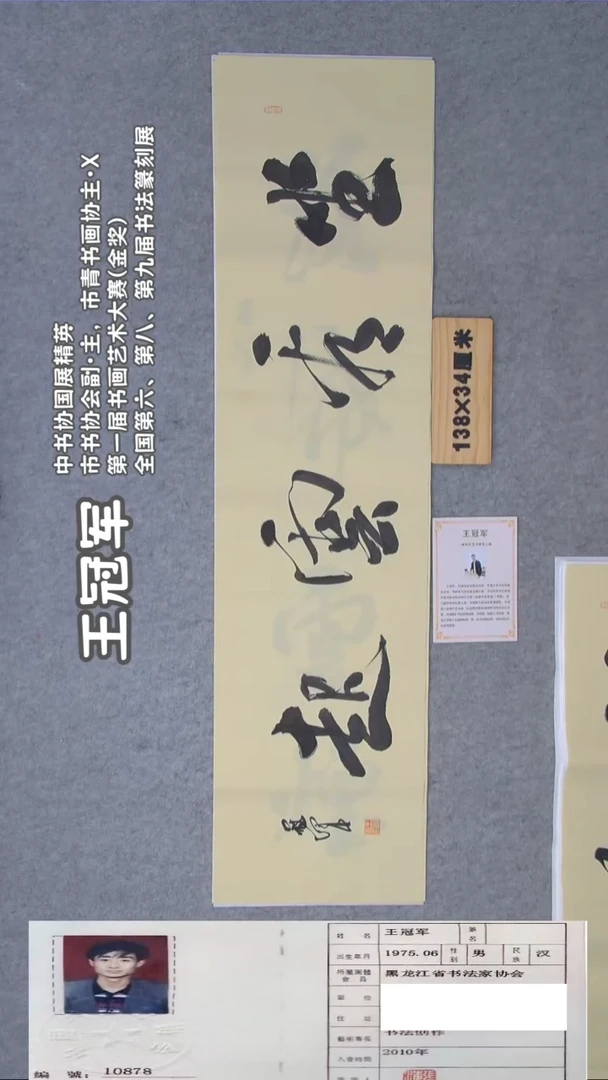 中书协国展精英
市书协会副·主，市青书画协主·X
第一届书画艺术大赛(金奖)
全国第六、第八、第九届书法篆刻展
王冠军
坐看雲起
138X34厘米
王冠军
姓名 王冠军 筆名
出生年月 1975.06 性别 男 民族 汉
黑龙江省书法家协会
單位
住址
藝術專長 书法创作
入會時間 2010年
編號：10878